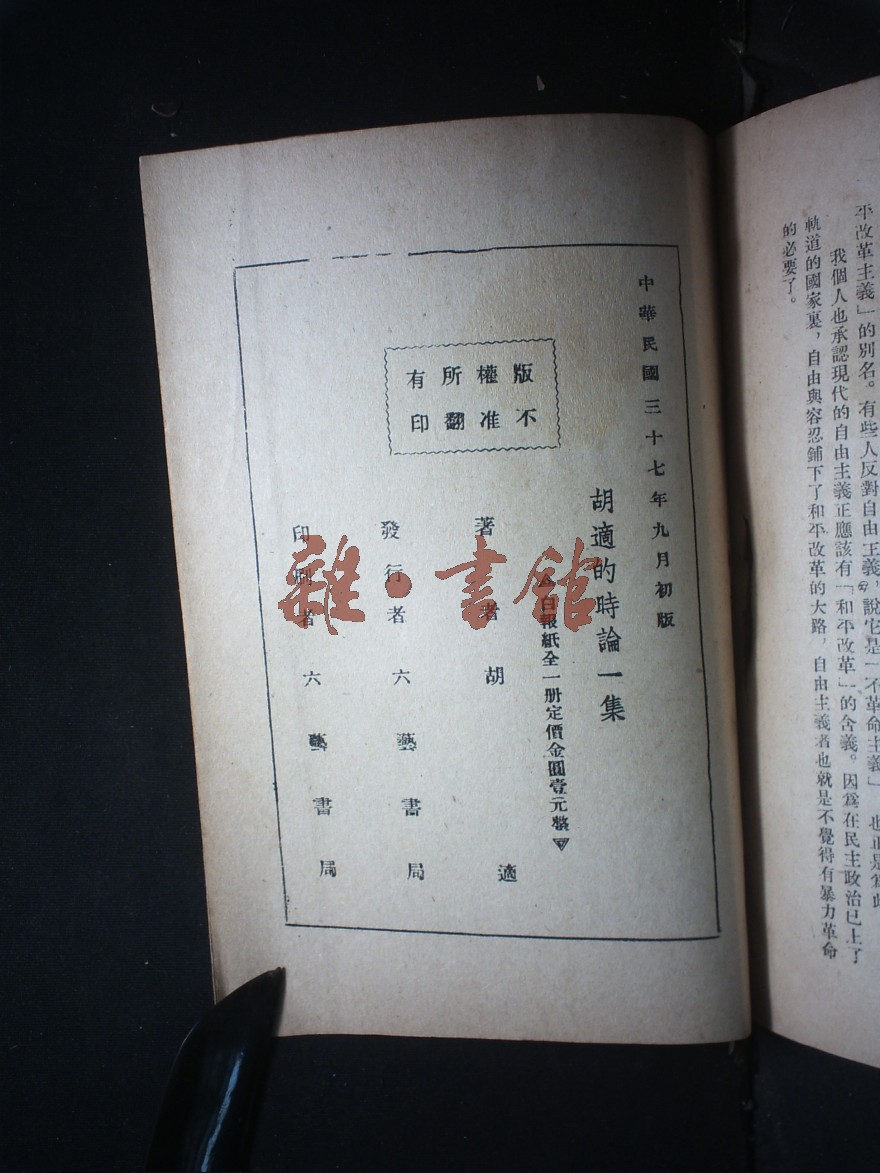 平改革主義」的別名。有些人反對自由主義，說它是「不革命主義」也正是爲此
我個人也承認現代的自由主義正應該有「和平改革」的含義。因爲在民主政治已上了
軌道的國家裏，自由與容忍鋪下了和平改革的大路，自由主義者也就是不覺得有暴力革命
的必要了。
中華民國三十七年九月初版
胡適的時論一集
白報紙全一册定價金圓壹元
版權所有
不准翻印
著者 胡適
發行者 六藝書局
印刷者 六藝書局
雜·書館